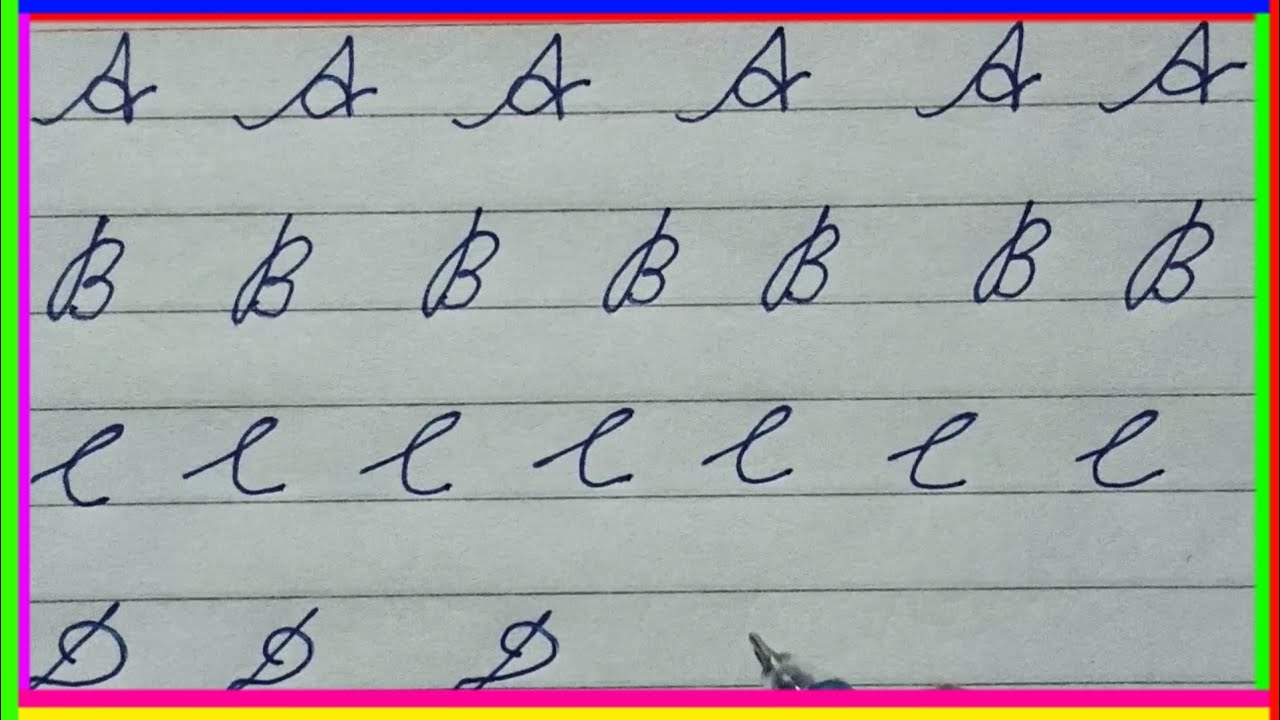 A A A A A A
B B B B B B B
C C C C C C C
D D D